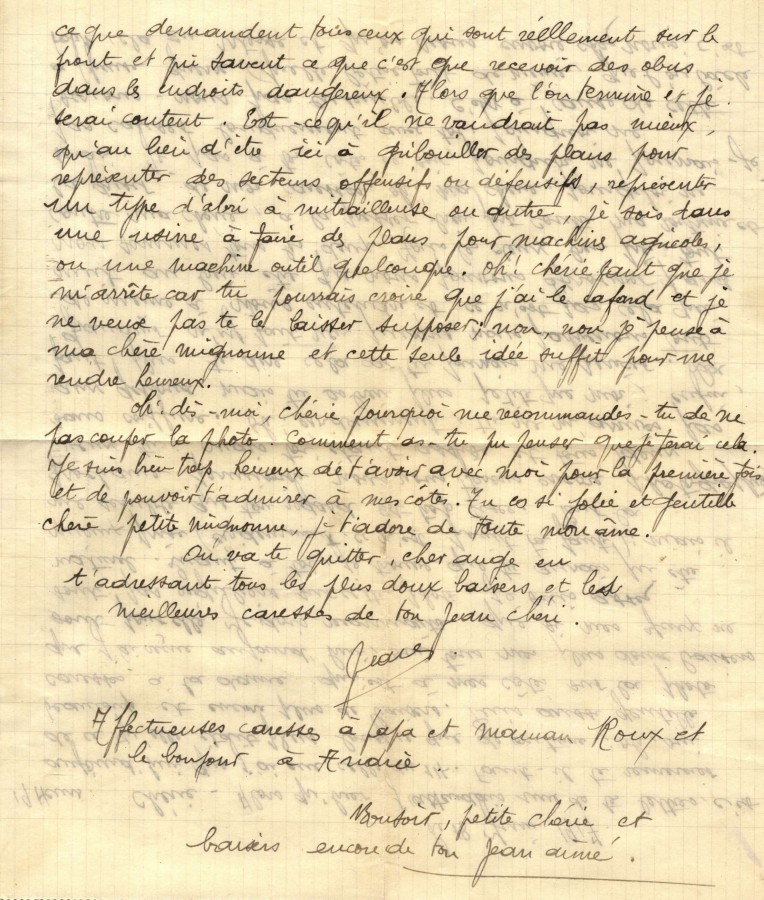 ce que demandent tous ceux qui sont réellement sur le
front et qui savent ce que c'est que recevoir des obus
dans les endroits dangereux. Alors que l'on termine et je
serai content. Est-ce qu'il ne vaudrait pas mieux,
qu'au lieu d'être ici à gribouiller des plans pour
représenter des secteurs offensifs ou défensifs, représenter
un type d'abri à mitrailleuse ou autre, je sois dans
une usine à faire des plans pour machines agricoles,
ou une machine outil quelconque. Oh! chérie faut que je
m'arrête car tu pourrais croire que j'ai le cafard et je
ne veux pas te le laisser supposer; non, non je pense à
ma chère mignonne et cette seule idée suffit pour me
rendre heureux.
Oh! dis-moi, chérie pourquoi me recommandes-tu de ne
pas couper la photo. Comment as-tu pu penser que je ferai cela.
Je suis bien trop heureux de t'avoir avec moi pour la première fois
et de pouvoir t'admirer à mes côtés. Tu es si jolie et gentille
chère petite mignonne, j-t'adore de toute mon âme.
On va te quitter, cher ange en
t'adressant tous les plus doux baisers et les
meilleures caresses de ton Jean chéri.
Jean
Affectueuses caresses à papa et maman Roux et
le bonjour à Andrée.
Bonsoir, petite chérie et
baisers encore de ton Jean aimé.